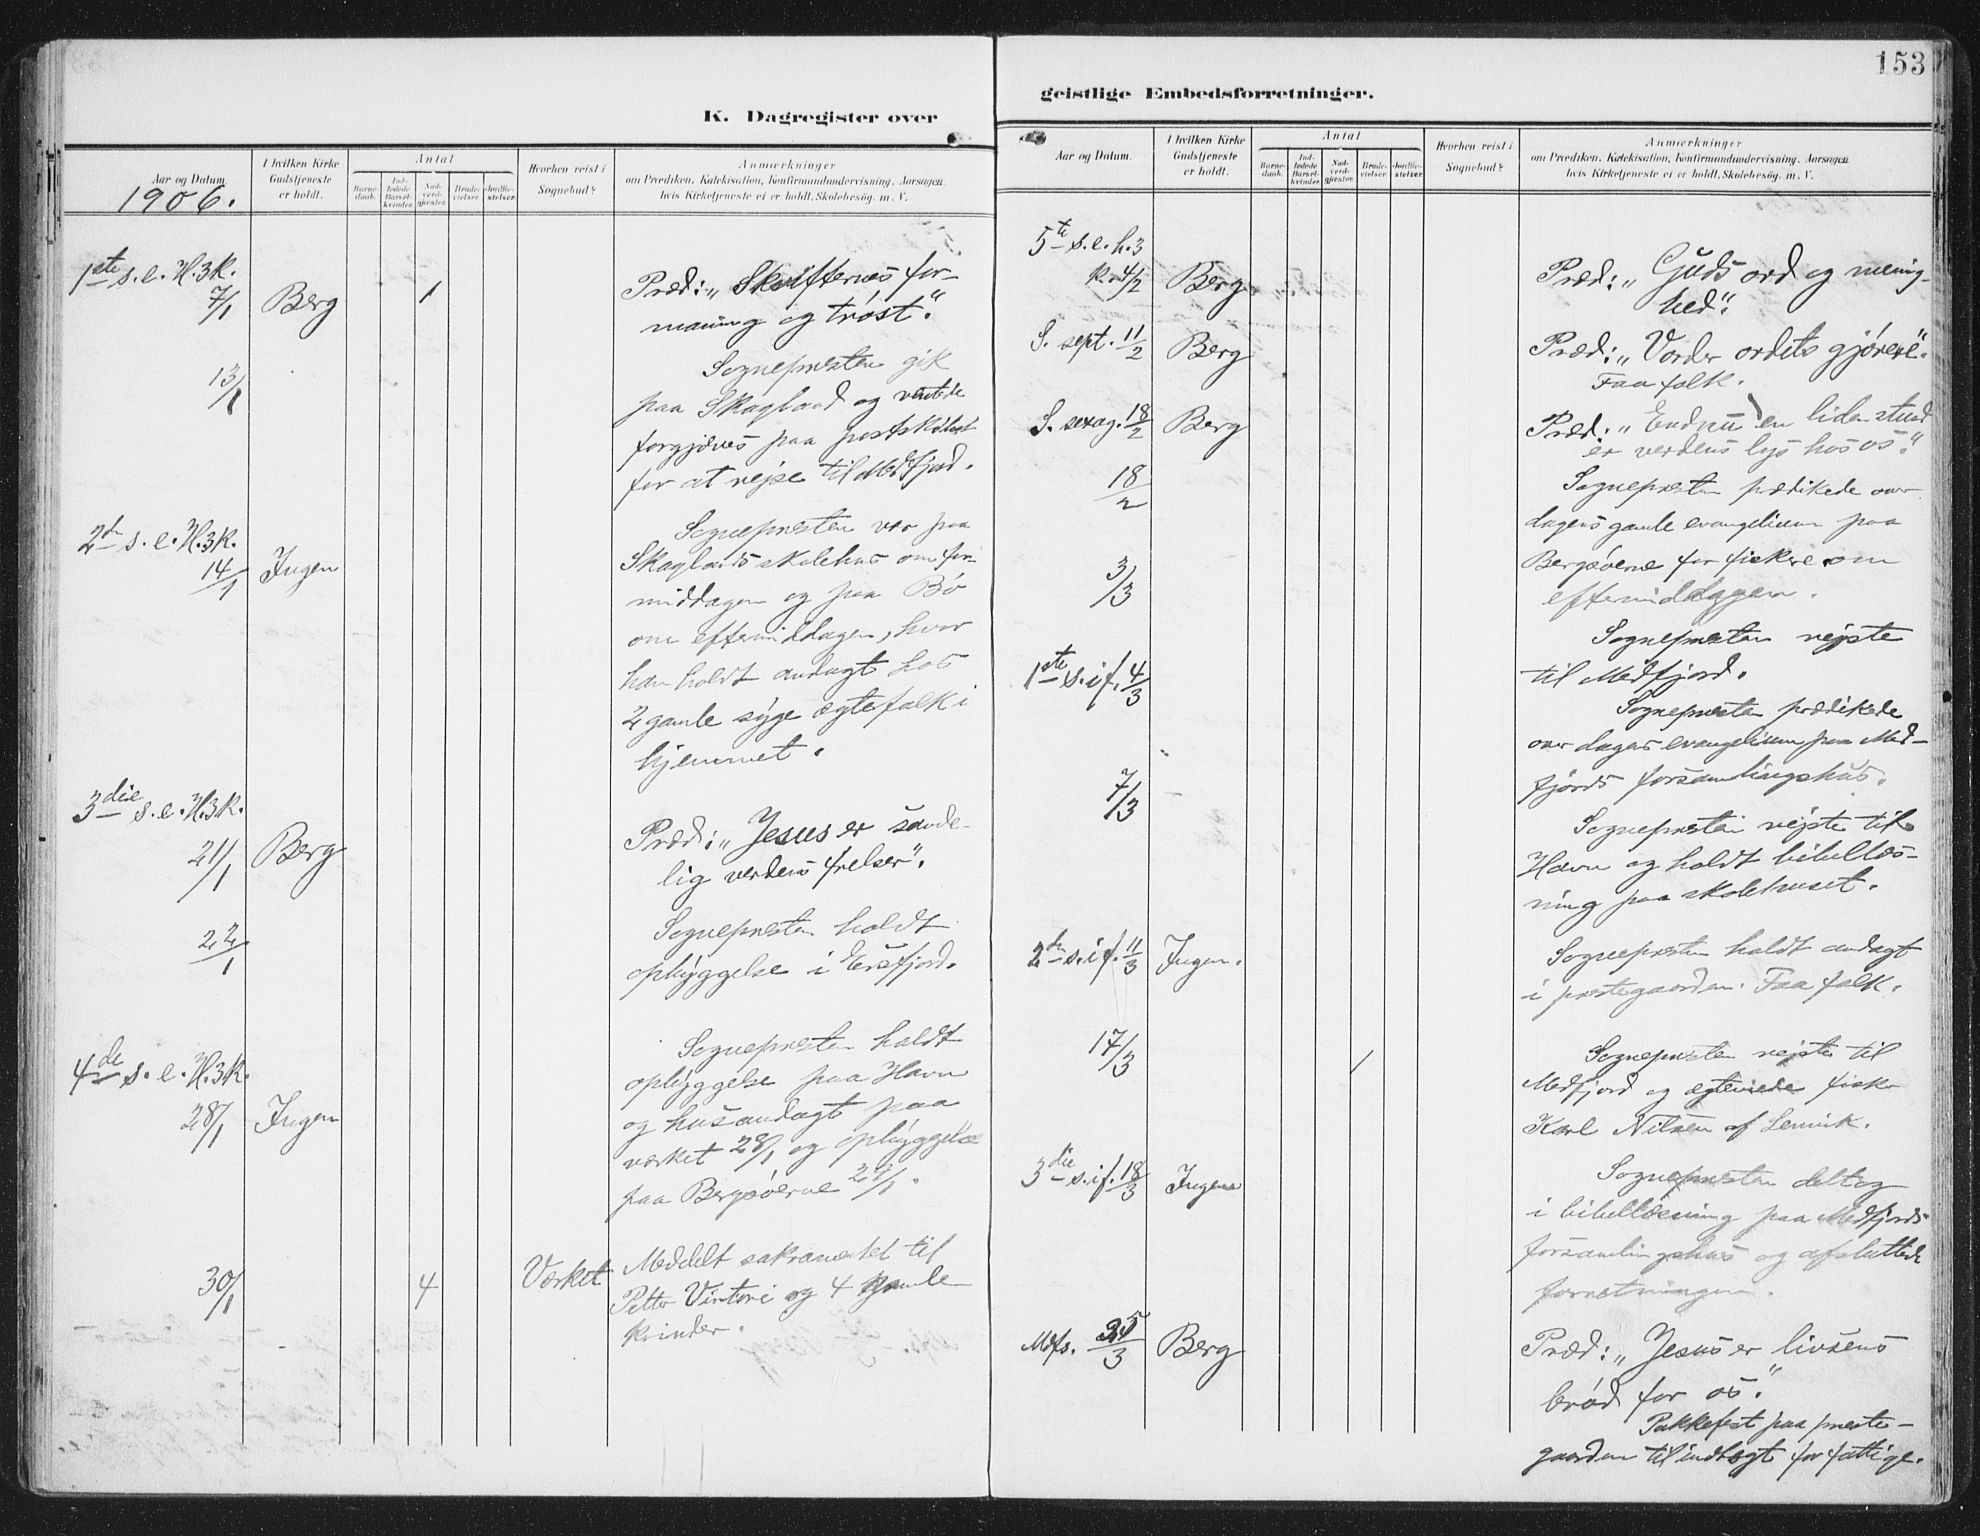 K. Dagregister over
Aar og Datum.
1906.
I hvilken Kirke
Gudstjeneste
er holdt.
Antal
Barne-
daab.
Ind-
ledede
Barsel-
kvinder.
Nad-
verd-
gjæster.
Brude-
vielser.
Jordfæ-
stelser.
Hvorhen reist i
Sognebud?
Anmærkninger
om Prædiken, Katekisation, Konfirmandundervisning, Aarsagen,
hvis Kirketjeneste ei er holdt, Skolebesøg. m. V.
1ste s. e. H.3k.
7/1 Berg 1 Præd: „Skrifternes for-
maning og trøst."
13/1 Sognepresten gik
paa Skagland og ventede
forgjæves paa postskøiten
for at rejse til Medfjord.
2den s. e. H.3k.
14/1 Ingen Sognepresten var paa
Skaglands skolehus om for-
middagen og paa Bø
om eftermiddagen, hvor
han holdt andagt hos
2 gamle syge ægtefolk i
hjemmet.
3die s. e. H.3k.
21/1 Berg Præd: „Jesus er sande-
lig verdens frelser".
22/1 Sognepresten holdt
opbyggelse i Ersfjord.
4de s. e. H.3k.
28/1 Ingen Sognepresten holdt
opbyggelse paa Havn
og husandagt paa
værket 28/1 og opbyggelse
paa Bergsøerne 29/1.
30/1 4 Værket Meddelt sakramentet til
Petter og 4 gamle
kvinder.
153
geistlige Embedsforretninger.
Aar og Datum.
I hvilken Kirke
Gudstjeneste
er holdt.
Antal
Barne-
daab.
Ind-
ledede
Barsel-
kvinder.
Nad-
verd-
gjæster.
Brude-
vielser.
Jordfæ-
stelser.
Hvorhen reist i
Sognebud?
Anmærkninger
om Prædiken, Katekisation, Konfirmandundervisning, Aarsagen
hvis Kirketjeneste ei er holdt, Skolebesøg. m. V.
5te s. e. h. 3
k. 4/2 Berg Præd: „Guds ord og menig-
hed".
S. sept. 11/2 Berg Præd: „Vorder ordets gjørere".
Faa folk.
S. sexag. 18/2 Berg Præd: „Endnu en liden stund
er verdens lys hos os".
18/2 Sognepresten prædikede over
dagens gamle evangelium paa
Bergsøerne for fiskere om
eftermiddagen.
3/3 Sognepresten rejste
til Medfjord.
1ste s. i f. 4/3 Sognepresten prædikede
over dagens evangelium paa Med-
fjords forsamlingshus.
7/3 Sognepresten rejste til
Havn og holdt bibellæs-
ning paa skolehuset.
2den s. i f. 11/3 Ingen. Sognepresten holdt andagt
i prestegaarden. Faa folk.
17/3 1 Sognepresten rejste til
Medfjord og ægteviede fisker
Karl Nilsen af Lenvik.
3die s. i f. 18/3 Ingen Sognepresten deltog
i bibellæsning paa Medfjords
forsamlingshus og afsluttede
forretningen.
Mfs. 25/3 Berg Præd: „Jesus er livsens
brød for os."
Pakkefest paa preste-
gaarden til indtægt for fattige.